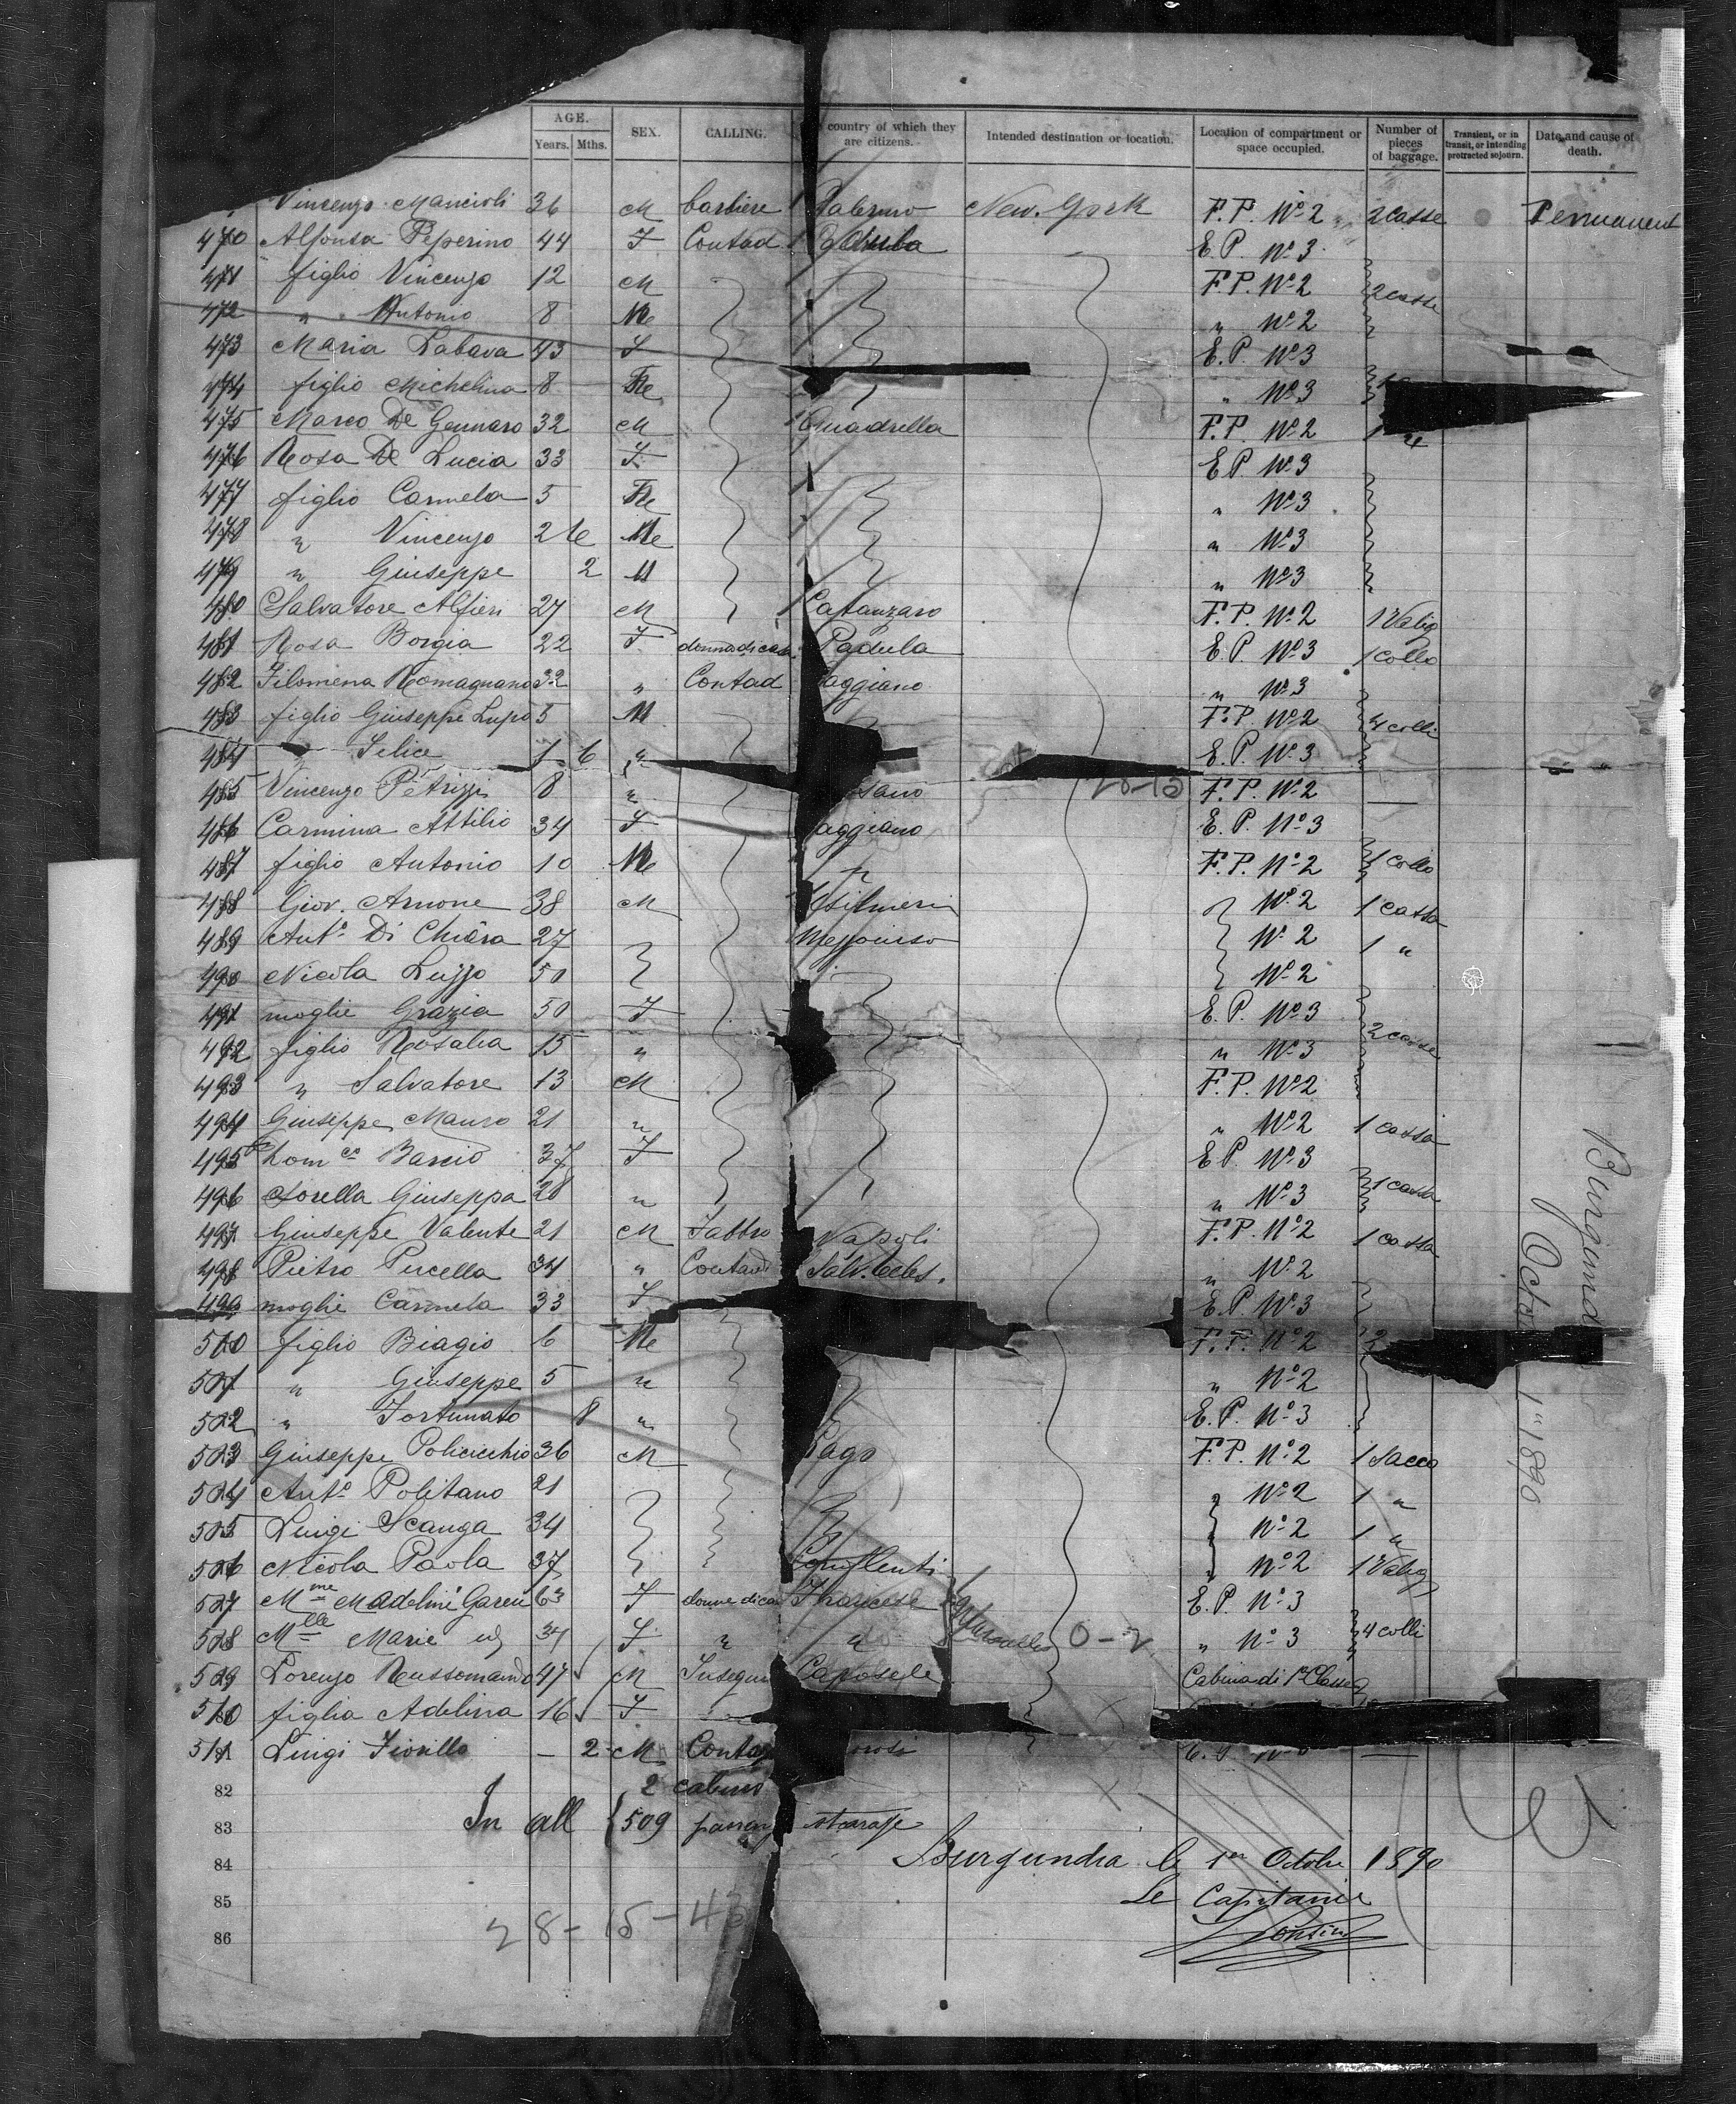 AGE.
Years. Mths. SEX. CALLING. country of which they are citizens. Intended destination or location. Location of compartment or space occupied. Number of pieces of baggage. Transient, or in transit, or intending protracted sojourn. Date and cause of death.
Vincenzo Mancioli 36 M barbiere Palermo New-York F.P. Nº 2 2 casse Permanent
470 Alfonsa Peperino 44 F Contad Padula E.P. Nº 3
471 figlio Vincenzo 12 M F.P. Nº 2 2 casse
472 " Antonio 8 M " Nº 2
473 Maria Labava 43 F E.P. Nº 3
474 figlio Michelina 8 Fe " Nº 3
475 Marco De Gennaro 32 M Quadrella F.P. Nº 2
476 Rosa De Lucia 33 F E.P. Nº 3
477 figlio Carmela 5 Fe " Nº 3
478 " Vincenzo 2 6 M " Nº 3
479 " Giuseppe 2 M " Nº 3
480 Salvatore Alfieri 27 M Catanzaro F.P. Nº 2 1 Valig
481 Rosa Borgia 22 F donna di casa Padula E.P. Nº 3 1 collo
482 Filomena Romagnano 32 " Contad aggiano " Nº 3
483 figlio Giuseppe Lupo 5 M F.P. Nº 2 4 colli
484 Felice 1 6 " E.P. Nº 3
485 Vincenzo Petrizzi 8 " sano F.P. Nº 2 —
486 Carmina Attilio 34 F aggiano E.P. Nº 3
487 figlio Antonio 10 M F.P. Nº 2 1 collo
488 Giov. Arnone 38 M Nº 2 1 cassa
489 Antº Di Chiara 27 Mezzojuso Nº 2 1 "
490 Nicola Luzzo 50 Nº 2
491 moglie Grazia 50 F E.P. Nº 3
492 figlio Rosalia 15 " " Nº 3 2 casse
493 " Salvatore 13 M F.P. Nº 2
494 Giuseppe Mauro 21 " " Nº 2 1 cassa
495 Domca Barcio 37 F E.P. Nº 3
496 sorella Giuseppa 28 " " Nº 3 1 cassa
497 Giuseppe Valente 21 M Fabbro Napoli F.P. Nº 2 1 cassa
498 Pietro Pucella 34 " Contad Salv. " Nº 2
499 moglie Carmela 33 F E.P. Nº 3
500 figlio Biagio 6 M F.P. Nº 2
501 " Giuseppe 5 " " Nº 2
502 " Fortunato 8 " E.P. Nº 3
503 Giuseppe Policicchio 36 M Lago F.P. Nº 2 1 Sacco
504 Antº Politano 21 Nº 2 1 "
505 Luigi Scanga 34 Nº 2 1 "
506 Nicola Paola 37 Nº 2 1 Valig
507 Mme Madeline 63 F donne di ca Francese E.P. Nº 3
508 Mlle Marie id 34 F " " 0-2 " Nº 3 4 colli
509 Lorenzo Russomando 47 M Caposele Cabina di 1ª Classe
510 figlia Adelina 16 F
511 Luigi Fiorillo — 2 M Conta —
82 2 cabine
83 In all 509 passeng steerage
84 Burgundia le 1er Octobre 1890
85 Le Capitaine
86 28-15-43
Burgundia Octo 1" 1890